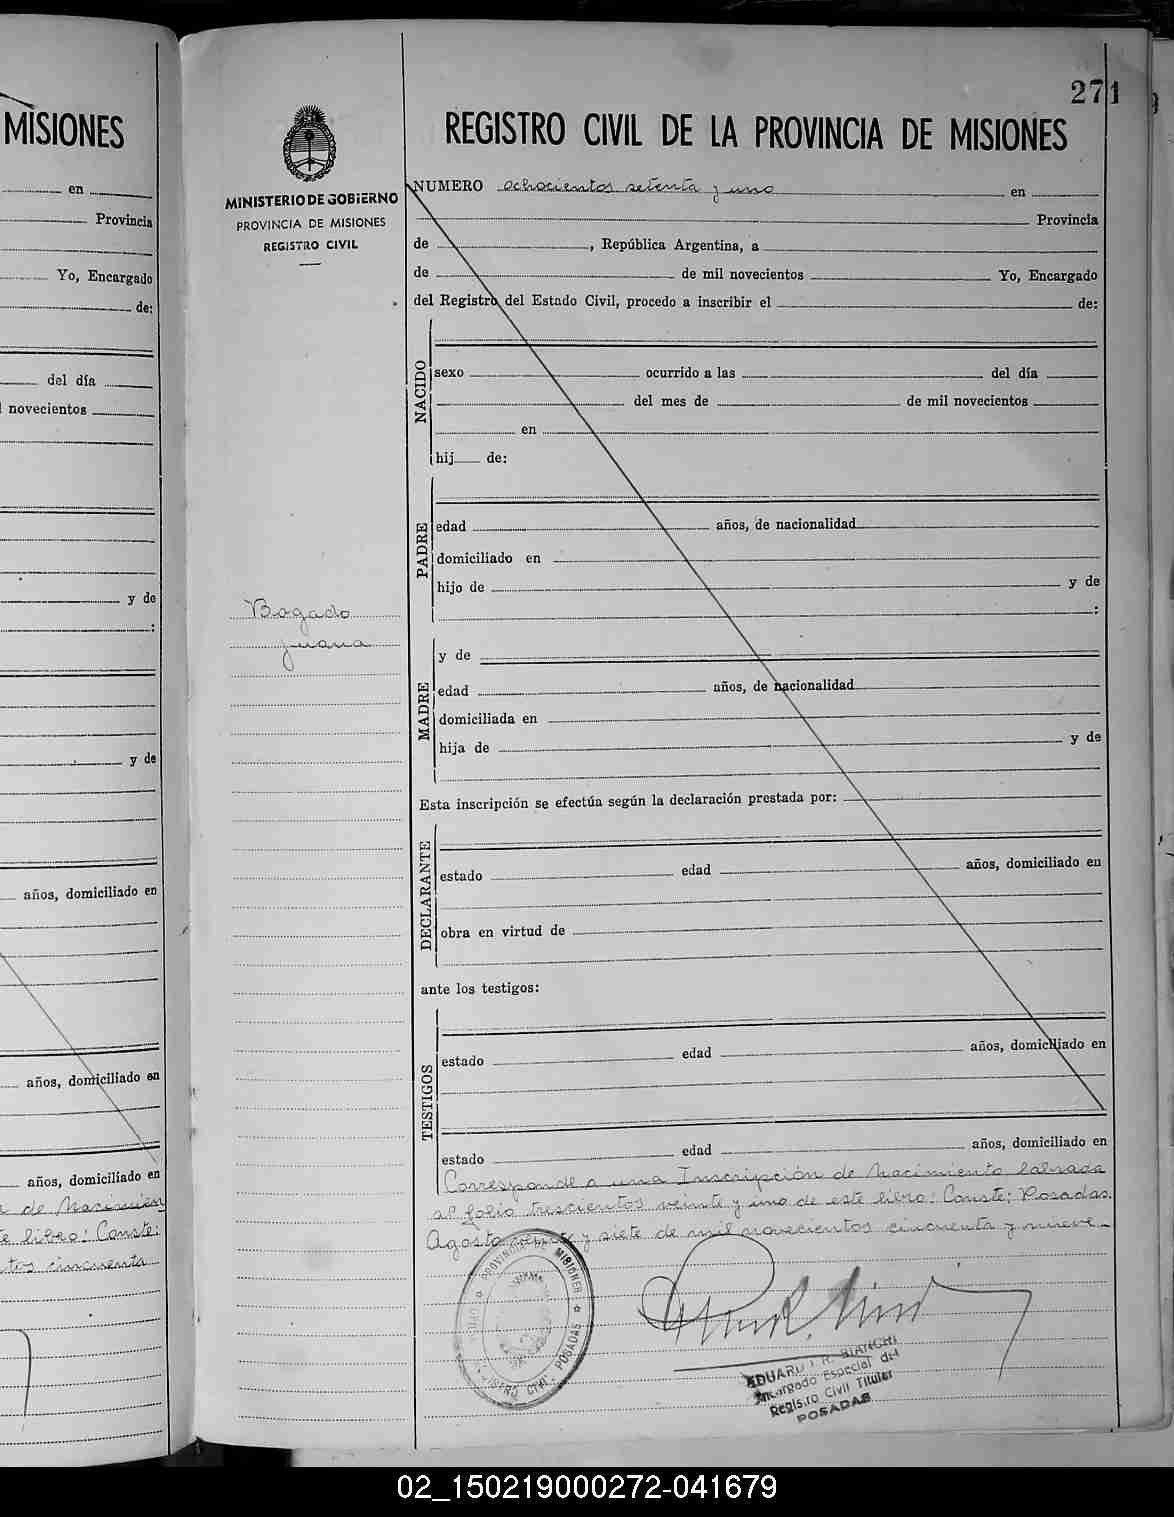 MISIONES
en
Provincia
Yo, Encargado
de:
del día
novecientos
y de
:
y de
años, domiciliado en
años, domiciliado en
años, domiciliado en
de Nacimien
libro: Conste:
cincuenta
271
MINISTERIO DE GOBIERNO
PROVINCIA DE MISIONES
REGISTRO CIVIL
Bogado
Juana
REGISTRO CIVIL DE LA PROVINCIA DE MISIONES
NUMERO ochocientos setenta y uno en
Provincia
de , República Argentina, a
de de mil novecientos Yo, Encargado
del Registro del Estado Civil, procedo a inscribir el de:
NACIDO
sexo ocurrido a las del día
del mes de de mil novecientos
en
hij de:
PADRE
edad años, de nacionalidad
domiciliado en
hijo de y de
:
MADRE
y de
edad años, de nacionalidad
domiciliada en
hija de y de
Esta inscripción se efectúa según la declaración prestada por:
DECLARANTE
estado edad años, domiciliado en
obra en virtud de
ante los testigos:
TESTIGOS
estado edad años, domiciliado en
estado edad años, domiciliado en
Corresponde a una Inscripción de Nacimiento labrada
al folio trescientos veinte y uno de este libro: Conste: Posadas.
Agosto veinte y siete de mil novecientos cincuenta y nueve.-
PROVINCIA DE MISIONES
REGISTRO CIVIL POSADAS
EDUARDO R. BIANCHI
Encargado Especial del
Registro Civil Titular
POSADAS
02_150219000272-041679